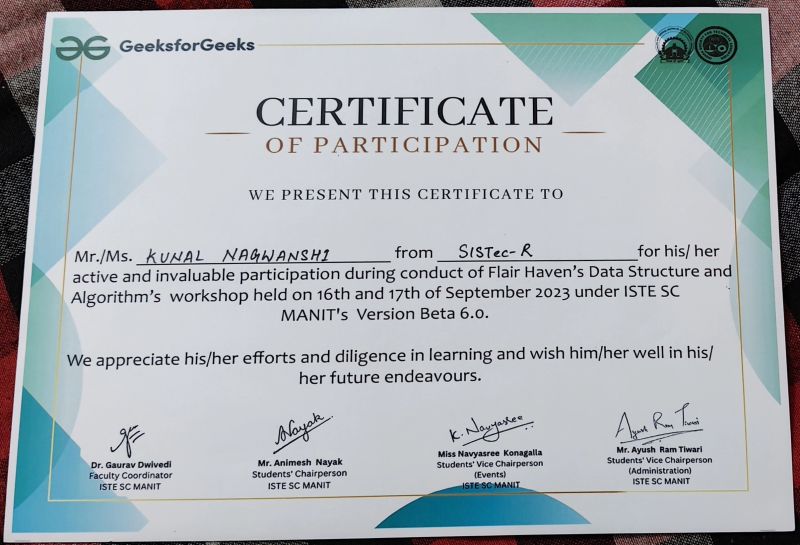 GeeksforGeeks
CERTIFICATE
OF PARTICIPATION
WE PRESENT THIS CERTIFICATE TO
Mr./Ms. KUNAL NAGWANSHI from SISTec-R for his/ her
active and invaluable participation during conduct of Flair Haven's Data Structure and
Algorithm's workshop held on 16th and 17th of September 2023 under ISTE SC
MANIT's Version Beta 6.0.
We appreciate his/her efforts and diligence in learning and wish him/her well in his/
her future endeavours.
Dr. Gaurav Dwivedi
Faculty Coordinator
ISTE SC MANIT
ANayak
Mr. Animesh Nayak
Students' Chairperson
ISTE SC MANIT
K. Navyasree
Miss Navyasree Konagalla
Students' Vice Chairperson
(Events)
ISTE SC MANIT
Ayush Ram Tiwari
Mr. Ayush Ram Tiwari
Students' Vice Chairperson
(Administration)
ISTE SC MANIT